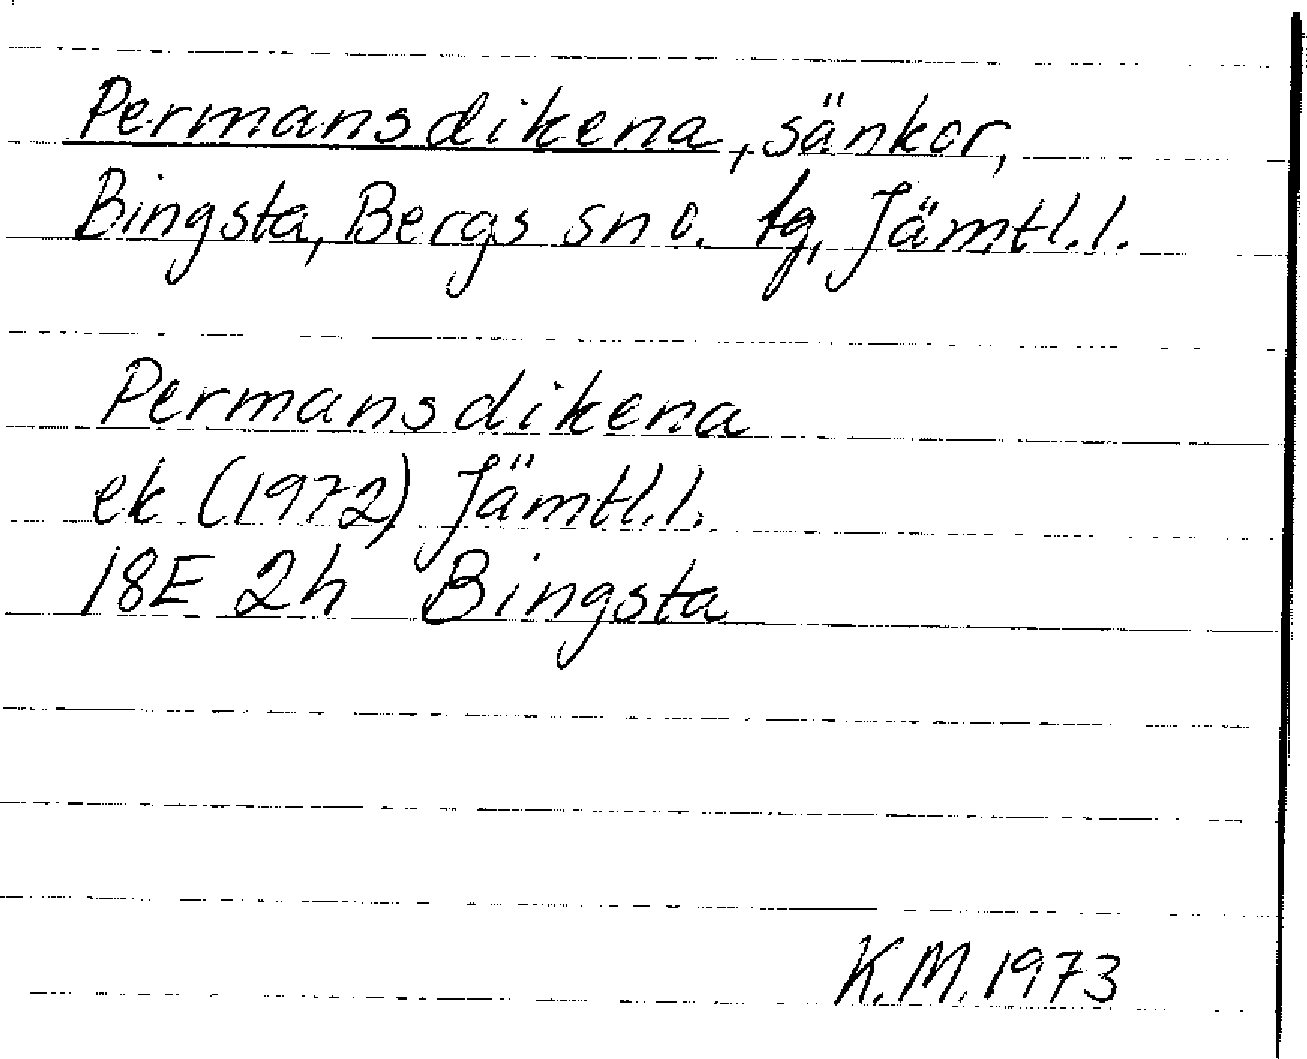 Permansdikena, sänkor,
Bingsta, Bergs sn o. tg, Jämtl.l.
Permansdikena
ek (1972) Jämtl.l.
18E 2h Bingsta
K.M. 1973